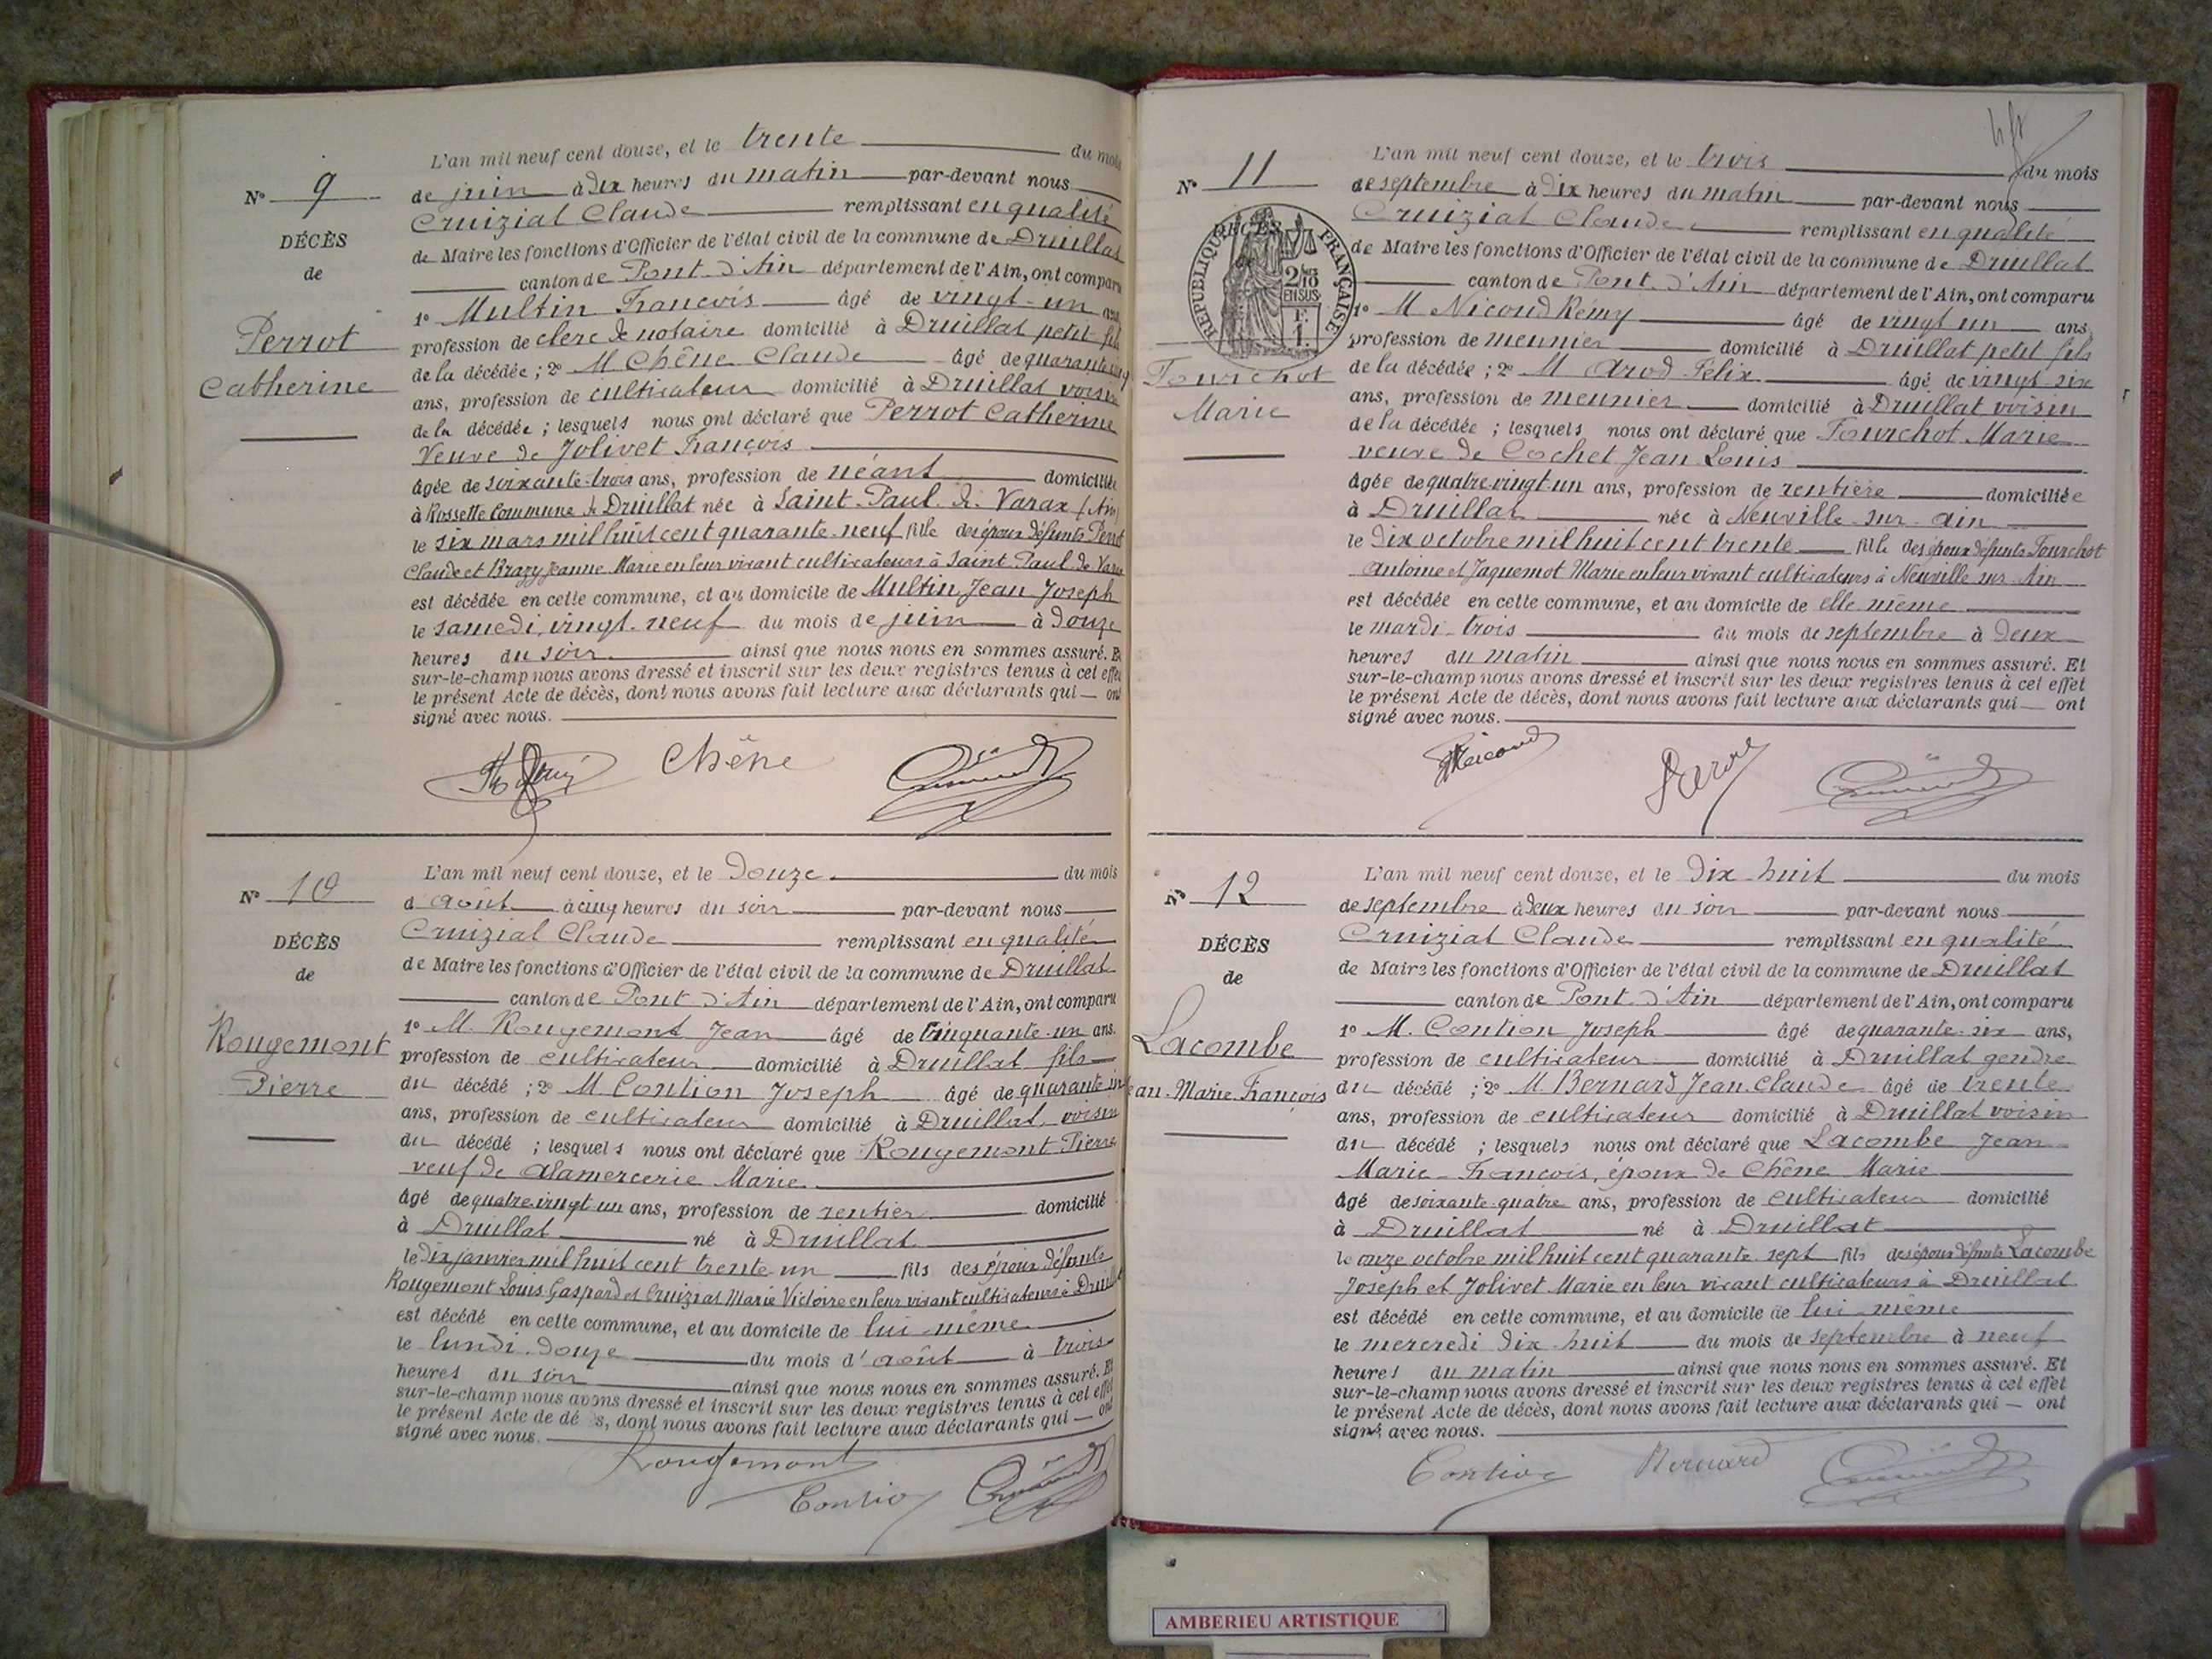 L'an mil neuf cent douze, et le trente du mois
N° 9
de juin à dix heures du matin par-devant nous
Cruizial Claude remplissant en qualité
DÉCÈS
de Maire les fonctions d'Officier de l'état civil de la commune de Druillat
de
canton de Pont d'Ain département de l'Ain, ont comparu
1° Multin François âgé de vingt-un ans
Perrot
profession de clerc de notaire domicilié à Druillat petit fils
Catherine
de la décédée ; 2° M Chêne Claude âgé de quarante
ans, profession de cultivateur domicilié à Druillat voisin
de la décédée ; lesquels nous ont déclaré que Perrot Catherine
Veuve de Jolivet François
âgée de soixante-trois ans, profession de néant domiciliée
à Rossette Commune de Druillat née à Saint-Paul de Varax (Ain)
le six mars mil huit cent quarante-neuf fille des époux défunts Perrot
Claude et Brazy Jeanne Marie en leur vivant cultivateurs à Saint Paul de Varax
est décédée en cette commune, et au domicile de Multin Jean Joseph
le samedi vingt-neuf du mois de juin à douze
heures du soir ainsi que nous nous en sommes assuré. Et
sur-le-champ nous avons dressé et inscrit sur les deux registres tenus à cet effet
le présent Acte de décès, dont nous avons fait lecture aux déclarants qui — ont
signé avec nous.
Chêne
L'an mil neuf cent douze, et le Douze du mois
N° 10
d'août à cinq heures du soir par-devant nous
Cruizial Claude remplissant en qualité
DÉCÈS
de Maire les fonctions d'Officier de l'état civil de la commune de Druillat
de
canton de Pont d'Ain département de l'Ain, ont comparu
1° M. Rougemont Jean âgé de cinquante-un ans.
Rougemont
profession de cultivateur domicilié à Druillat fils
Pierre
du décédé ; 2° M Contion Joseph âgé de quarante
ans, profession de cultivateur domicilié à Druillat voisin
du décédé ; lesquels nous ont déclaré que Rougemont Pierre
veuf de Alamercerie Marie
âgé de quatre-vingt un ans, profession de rentier domicilié
à Druillat né à Druillat
le Dix janvier mil huit cent trente-un fils des époux défunts
Rougemont Louis Gaspard et Cruizial Marie Victoire en leur vivant cultivateurs à Druillat
est décédé en cette commune, et au domicile de lui-même
le lundi douze du mois d'août à trois
heures du soir ainsi que nous nous en sommes assuré. Et
sur-le-champ nous avons dressé et inscrit sur les deux registres tenus à cet effet
le présent Acte de dé s, dont nous avons fait lecture aux déclarants qui — ont
signé avec nous.
Rougemont
Contion
L'an mil neuf cent douze, et le trois du mois
N° 11
de septembre à Dix heures du matin par-devant nous
Cruizial Claude remplissant en qualité
de Maire les fonctions d'Officier de l'état civil de la commune de Druillat
REPUBLIQUE FRANÇAISE
2/10 EN SUS
canton de Pont d'Ain département de l'Ain, ont comparu
1° M Nicoud Rémy âgé de vingt un ans
profession de meunier domicilié à Druillat petit fils
Fourchot
de la décédée ; 2° M Arod Félix âgé de vingt-six
Marie
ans, profession de meunier domicilié à Druillat voisin
de la décédée ; lesquels nous ont déclaré que Fourchot Marie
veuve de Cochet Jean Louis
âgée de quatre-vingt-un ans, profession de rentière domiciliée
à Druillat née à Neuville-sur-Ain
le Dix octobre mil huit cent trente fille des époux défunts Fourchot
Antoine et Jaquemot Marie en leur vivant cultivateurs à Neuville sur Ain
est décédée en cette commune, et au domicile de elle même
le mardi trois du mois de septembre à Deux
heures du matin ainsi que nous nous en sommes assuré. Et
sur-le-champ nous avons dressé et inscrit sur les deux registres tenus à cet effet
le présent Acte de décès, dont nous avons fait lecture aux déclarants qui — ont
signé avec nous.
Nicoud
L'an mil neuf cent douze, et le Dix-huit du mois
N° 12
de septembre à Deux heures du soir par-devant nous
Cruizial Claude remplissant en qualité
DÉCÈS
de Maire les fonctions d'Officier de l'état civil de la commune de Druillat
de
canton de Pont d'Ain département de l'Ain, ont comparu
1° M. Contion Joseph âgé de quarante-six ans,
Lacombe
profession de cultivateur domicilié à Druillat gendre
ean-Marie François
du décédé ; 2° M Bernard Jean Claude âgé de trente
ans, profession de cultivateur domicilié à Druillat voisin
du décédé ; lesquels nous ont déclaré que Lacombe Jean
Marie-François, époux de Chêne Marie
âgé de soixante quatre ans, profession de cultivateur domicilié
à Druillat né à Druillat
le onze octobre mil huit cent quarante-sept fils des époux défunts Lacombe
Joseph et Jolivet Marie en leur vivant cultivateurs à Druillat
est décédé en cette commune, et au domicile de lui-même
le mercredi dix-huit du mois de septembre à neuf
heures du matin ainsi que nous nous en sommes assuré. Et
sur-le-champ nous avons dressé et inscrit sur les deux registres tenus à cet effet
le présent Acte de décès, dont nous avons fait lecture aux déclarants qui — ont
signé avec nous.
Contion Bernard
AMBERIEU ARTISTIQUE